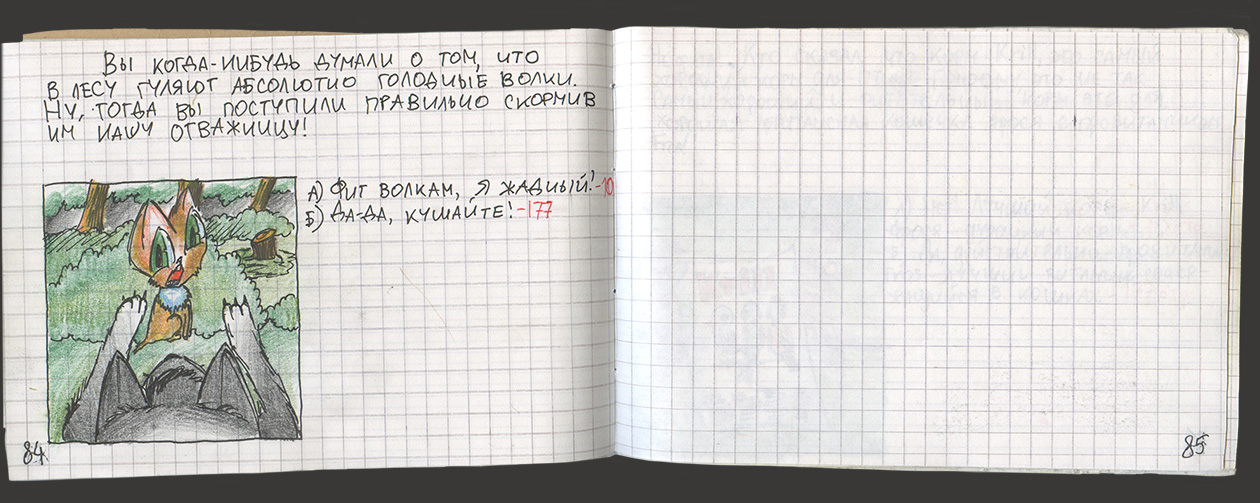 Вы когда-нибудь думали о том, что
в лесу гуляют абсолютно голодные волки.
Ну, тогда вы поступили правильно скормив
им нашу отважницу!
А) Фиг волкам, я жадный! -10
Б) Да-да, кушайте! -177
84
85